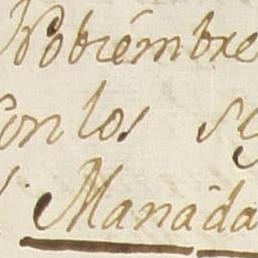 Nobiémbre
Con los
Manáda